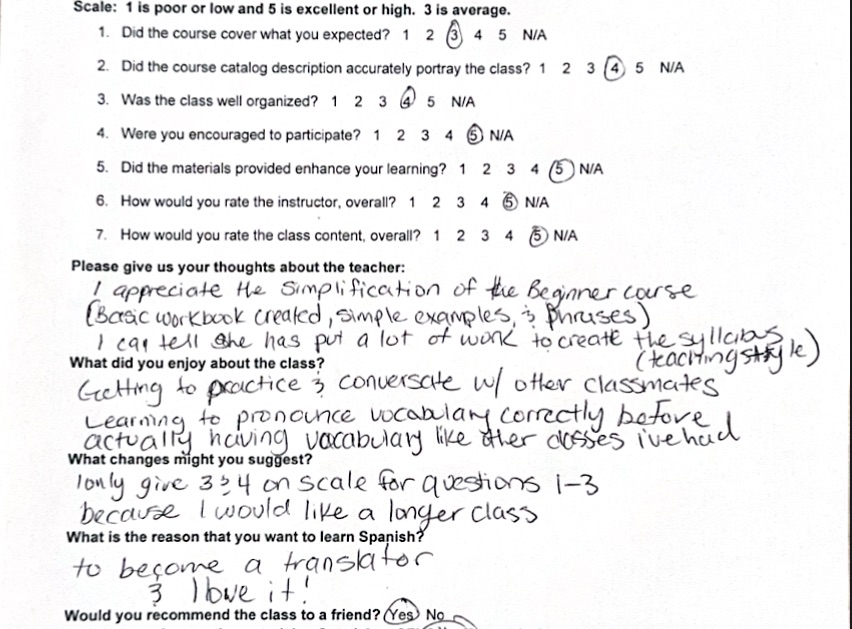 Scale: 1 is poor or low and 5 is excellent or high. 3 is average.
1. Did the course cover what you expected? 1 2 3 4 5 N/A
2. Did the course catalog description accurately portray the class? 1 2 3 4 5 N/A
3. Was the class well organized? 1 2 3 4 5 N/A
4. Were you encouraged to participate? 1 2 3 4 5 N/A
5. Did the materials provided enhance your learning? 1 2 3 4 5 N/A
6. How would you rate the instructor, overall? 1 2 3 4 5 N/A
7. How would you rate the class content, overall? 1 2 3 4 5 N/A
Please give us your thoughts about the teacher:
I appreciate the simplification of the Beginner course
(Basic workbook created, simple examples, & phrases)
I can tell she has put a lot of work to create the syllabus
(teaching style)
What did you enjoy about the class?
Getting to practice & conversate w/ other classmates
Learning to pronounce vocabulary correctly before
actually having vocabulary like other classes ive had
What changes might you suggest?
I only give 3 & 4 on scale for questions 1-3
because I would like a longer class
What is the reason that you want to learn Spanish?
to become a translator
& I love it!
Would you recommend the class to a friend? Yes No